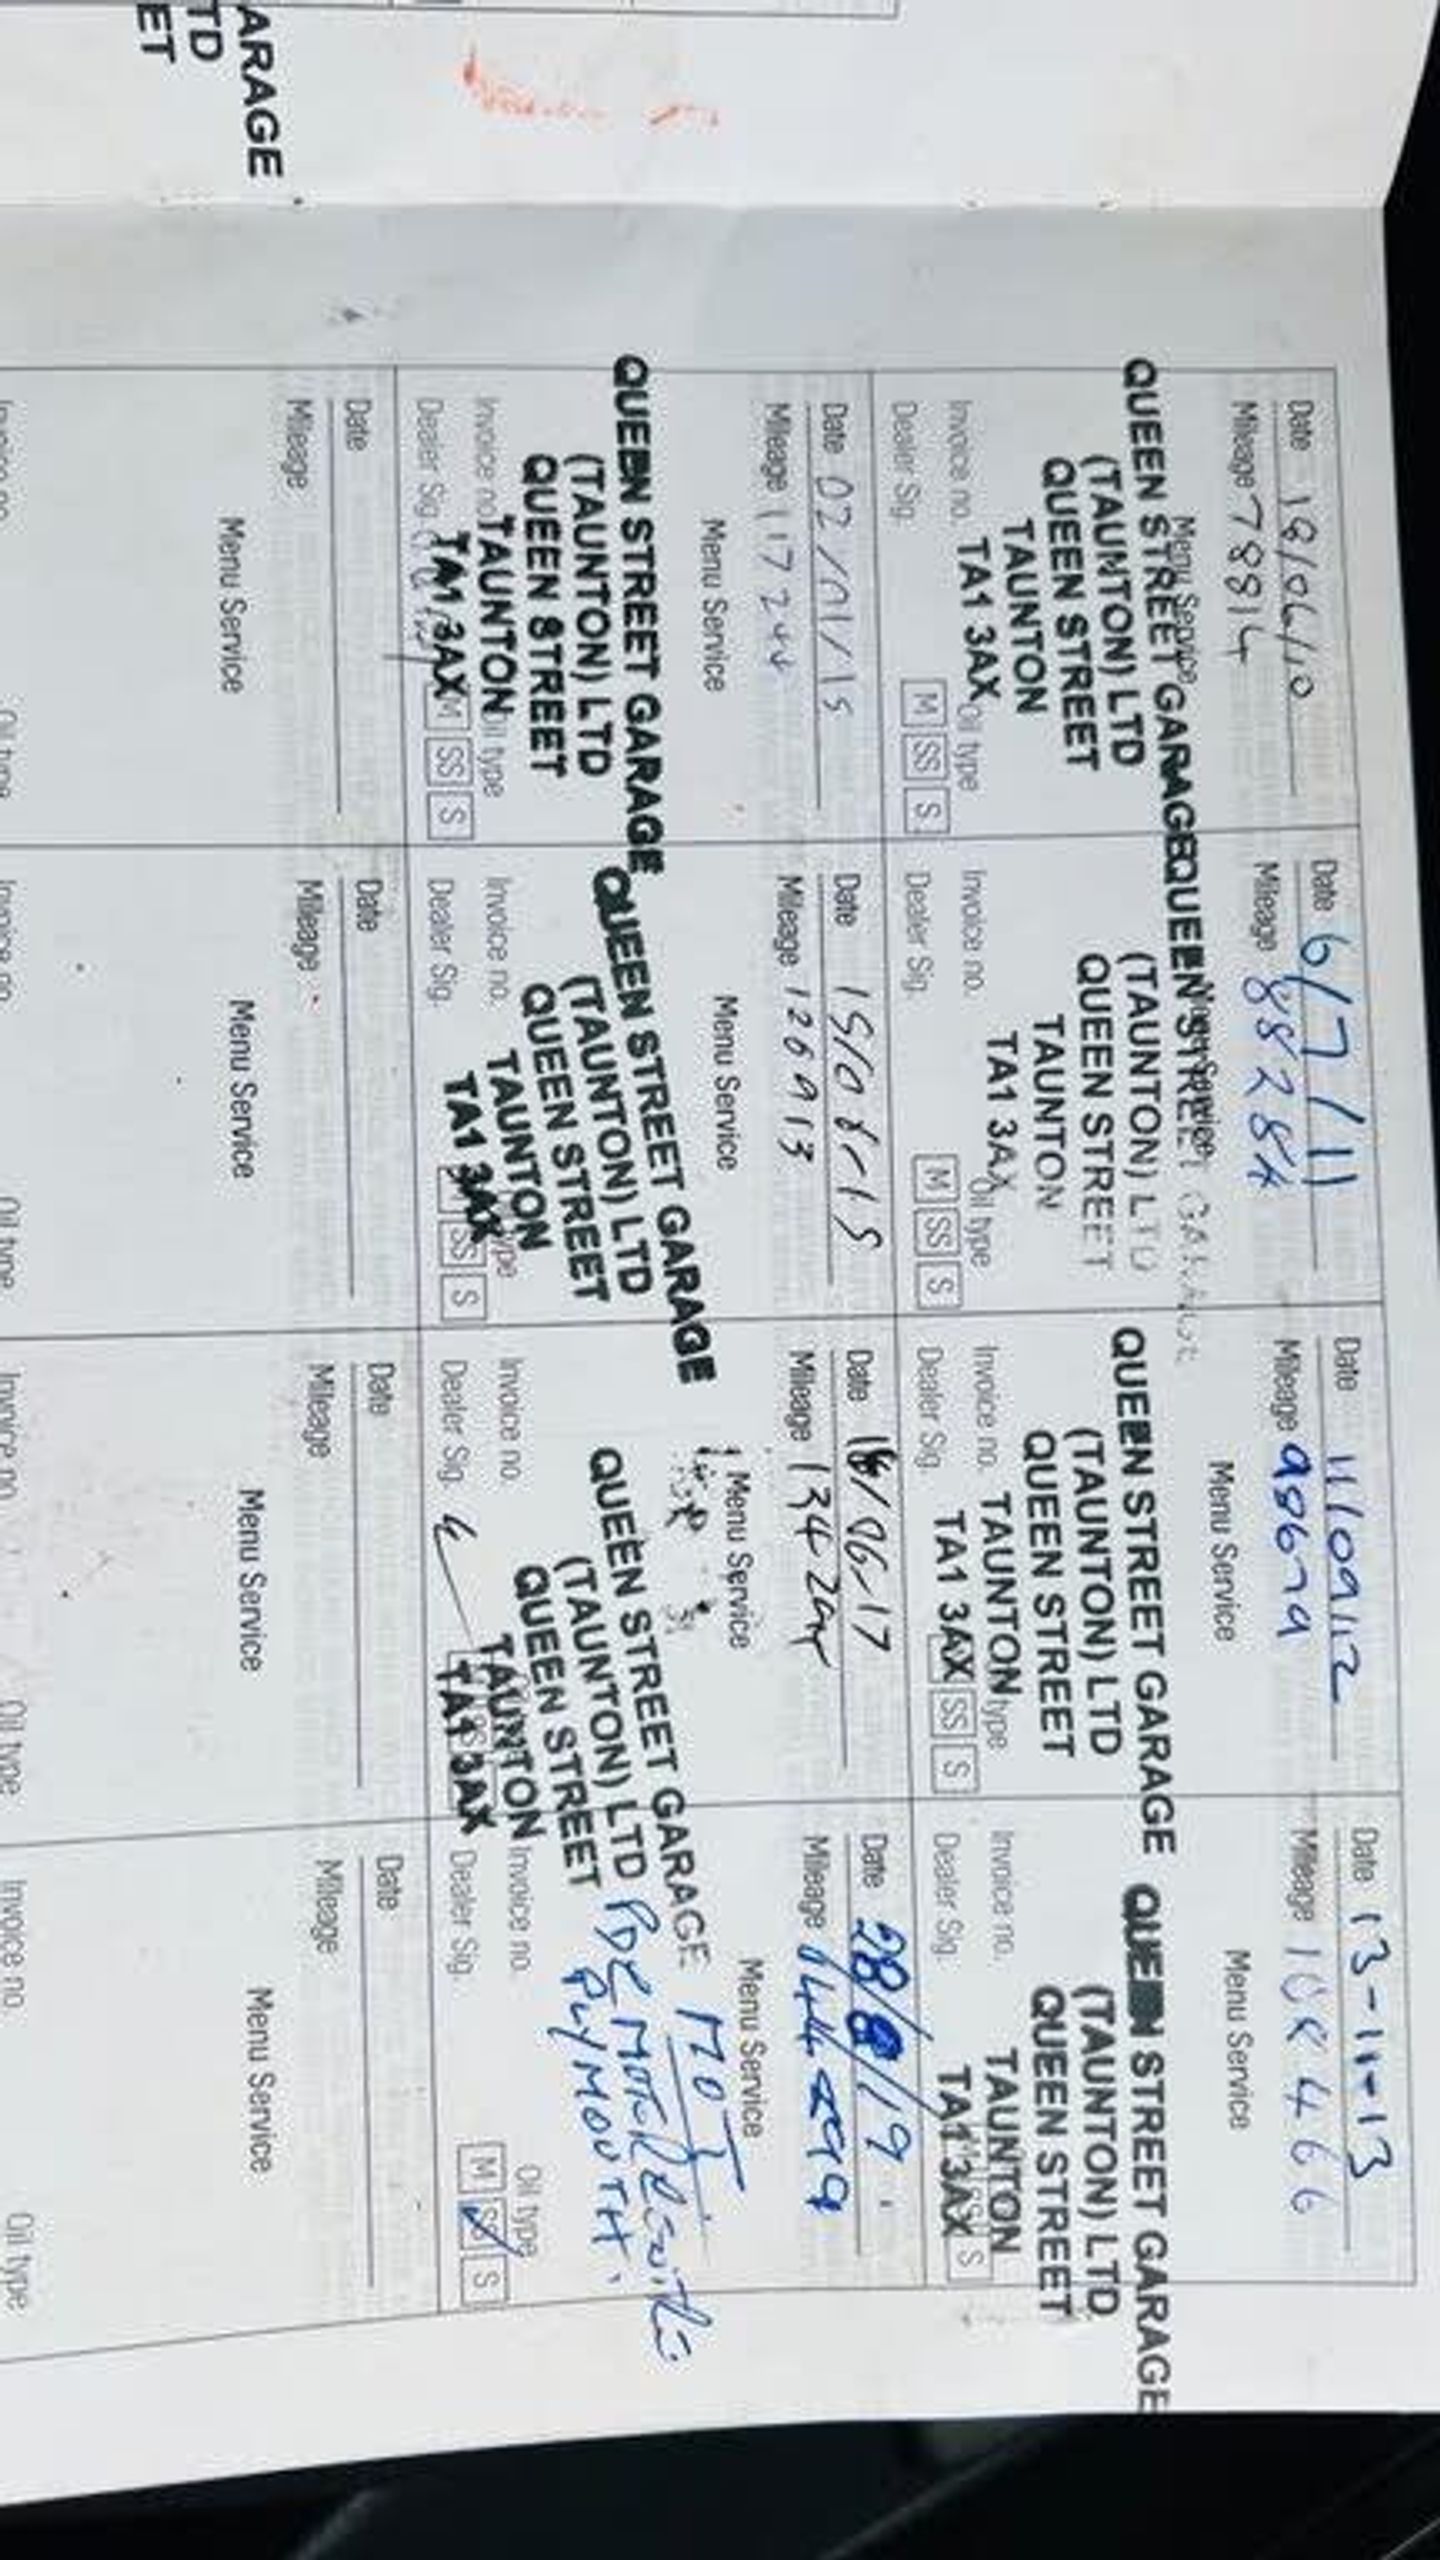 ARAGE
TD
ET
Date 18/06/10
Mileage 78814
Menu Service
QUEEN STREET GARAGE
(TAUNTON) LTD
QUEEN STREET
TAUNTON
TA1 3AX
Invoice no.
Oil type
Dealer Sig.
M SS S
Date 6/7/11
Mileage 88284
Menu Service
QUEEN STREET GARAGE
(TAUNTON) LTD
QUEEN STREET
TAUNTON
TA1 3AX
Invoice no.
Oil type
Dealer Sig.
M SS S
Date 11/09/12
Mileage 98679
Menu Service
QUEEN STREET GARAGE
(TAUNTON) LTD
QUEEN STREET
TAUNTON
TA1 3AX
Invoice no.
type
Dealer Sig.
SS S
Date 13-11-13
Mileage
Menu Service
QUEEN STREET GARAGE
(TAUNTON) LTD
QUEEN STREET
TAUNTON
TA1 3AX
Invoice no.
Dealer Sig.
S
Date 02/01/15
Mileage 117244
Menu Service
QUEEN STREET GARAGE
(TAUNTON) LTD
QUEEN STREET
TAUNTON
TA1 3AX
Invoice no.
Oil type
Dealer Sig.
M SS S
Date
Mileage 126913
Menu Service
QUEEN STREET GARAGE
(TAUNTON) LTD
QUEEN STREET
TAUNTON
TA1 3AX
Invoice no.
Dealer Sig.
SS S
Date
Mileage
Menu Service
QUEEN STREET GARAGE
(TAUNTON) LTD
QUEEN STREET
TAUNTON
TA1 3AX
Invoice no.
Dealer Sig.
Date 28/8/19
Mileage
Menu Service
MOT
MOTOR
PLYMOUTH.
Invoice no.
Oil type
Dealer Sig.
M SS S
Date
Mileage
Menu Service
Date
Mileage
Menu Service
Date
Mileage
Menu Service
Date
Mileage
Menu Service
Invoice no.
Oil type
Invoice no.
Oil type
Invoice no.
Oil type
Invoice no.
Oil type